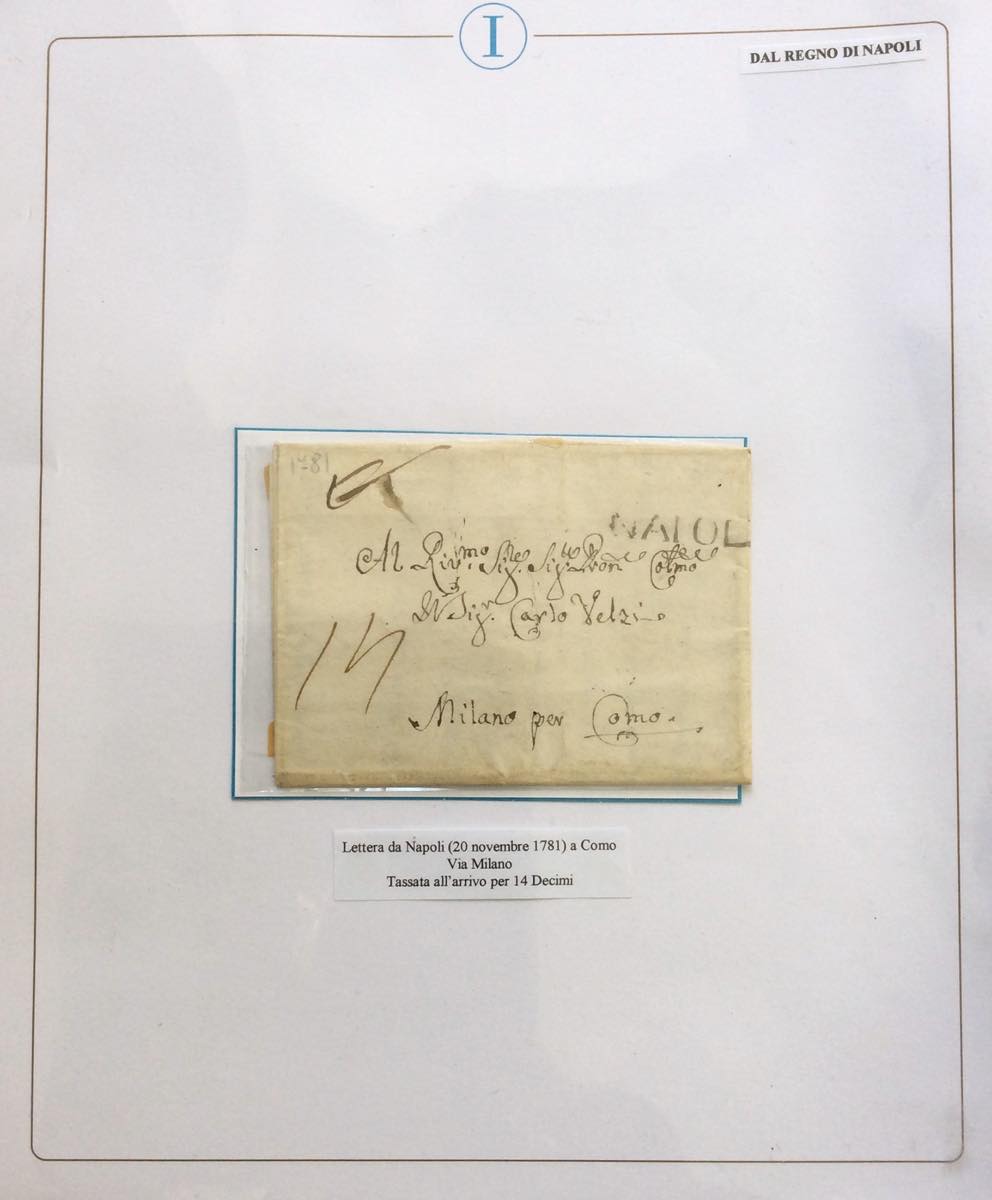 I
DAL REGNO DI NAPOLI
1781
NAPOL
Al Riv.mo Sig.e Sig.e Pron Colmo
Il Sig.r Carlo Velzi
14
Milano per Como.
Lettera da Napoli (20 novembre 1781) a Como
Via Milano
Tassata all'arrivo per 14 Decimi